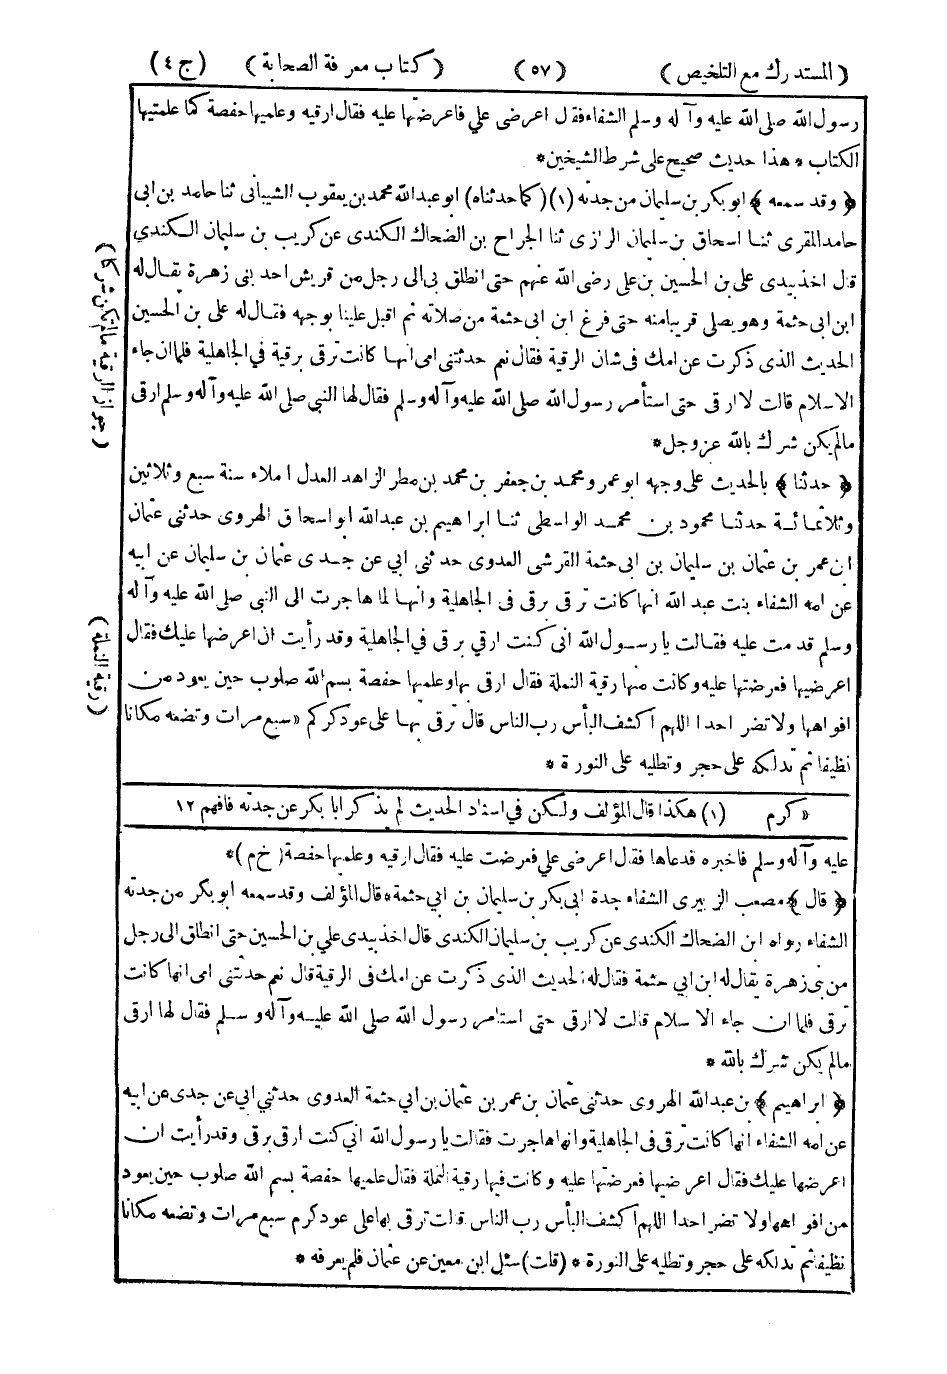 (المستدرك مع التلخيص) (٥٧) (كتاب معرفة الصحابة) (ج ٤)
رسول الله صلى الله عليه وآله وسلم الشفاء فقال اعرضى علي فاعرضتها عليه فقال ارقيه وعلميها حفصة كما علمتيها
الكتاب * هذا حديث صحيح على شرط الشيخين *
﴿ وقد سمعه ﴾ ابو بكر بن سليمان من جدته (١) (كما حدثناه) ابو عبد الله محمد بن يعقوب الشيبانى ثنا حامد بن ابى
حامد المقرى ثنا اسحاق بن سليمان الرازى ثنا الجراح بن الضحاك الكندى عن كريب بن سليمان الكندي
قال اخذ بيدى على بن الحسين بن على رضى الله عنهم حتى انطلق بى الى رجل من قريش احد بنى زهرة يقال له
ابن ابى حثمة وهو يصلى قريبا منه حتى فرغ ابن ابى حثمة من صلاته ثم اقبل علينا بوجهه فقال له على بن الحسين
الحديث الذى ذكرت عن امك فى شان الرقية فقال نعم حدثتنى امى انها كانت ترقى برقية في الجاهلية فلما ان جاء
الاسلام قالت لا ارقى حتى استأمر رسول الله صلى الله عليه وآله وسلم فقال لها النبي صلى الله عليه وآله وسلم ارقى
مالم يكن شرك بالله عز وجل *
(جواز الرقية مالم تكن شركا)
﴿ حدثنا ﴾ بالحديث على وجهه ابو عمرو محمد بن جعفر بن محمد بن مطر الزاهد العدل املاء سنة سبع وثلاثين
وثلاثمائة حدثنا محمود بن محمد الواسطى ثنا ابراهيم بن عبد الله ابو اسحاق الهروى حدثنى عثمان
ابن عمر بن عثمان بن سليمان بن ابى حثمة القرشى العدوى حدثنى ابي عن جدى عثمان بن سليمان عن ابيه
عن امه الشفاء بنت عبد الله انها كانت ترقى برقى فى الجاهلية وانها لما هاجرت الى النبي صلى الله عليه وآله
وسلم قدمت عليه فقالت يا رسول الله انى كنت ارقي برقى في الجاهلية وقد رأيت ان اعرضها عليك فقال
اعرضيها فعرضتها عليه وكانت منها رقية النملة فقال ارقى بها وعلميها حفصة بسم الله صلوب حين يعود من
افواهها ولا تضر احدا اللهم اكشف البأس رب الناس قال ترقى بها على عود كركم « سبع مرات وتضعه مكانا
نظيفا ثم تدلكه على حجر وتطليه على النورة *
(رقية النملة)
« كرم (١) هكذا قال المؤلف ولكن في اسناد الحديث لم يذكر ابا بكر عن جدته فافهم ١٢
عليه وآله وسلم فاخبره فدعاها فقال اعرضى علي فعرضت عليه فقال ارقيه وعلميها حفصة (خ م) *
﴿ قال ﴾ مصعب الزبيرى الشفاء جدة ابى بكر بن سليمان بن ابي حثمة * قال المؤلف وقد سمعه ابو بكر من جدته
الشفاء رواه ابن الضحاك الكندى عن كريب بن سليمان الكندى قال اخذ بيدى علي بن الحسين حتى انطلق الى رجل
من بنى زهرة يقال له ابن ابي حثمة فقال له الحديث الذى ذكرت عن امك فى الرقية قال نعم حدثتنى امى انها كانت
ترقى فلما ان جاء الاسلام قالت لا ارقى حتى استامر رسول الله صلى الله عليه وآله وسلم فقال لها ارقى
مالم يكن شرك بالله *
﴿ ابراهيم ﴾ بن عبد الله الهروى حدثنى عثمان بن عمر بن عثمان بن ابي حثمة العدوى حدثني ابي عن جدى عن ابيه
عن امه الشفاء انها كانت ترقى فى الجاهلية وانها هاجرت فقالت يا رسول الله انى كنت ارقى برقى وقد رأيت ان
اعرضها عليك فقال اعرضيها فعرضتها عليه وكانت فيها رقية النملة فقال علميها حفصة بسم الله صلوب حين يعود
من افواهها ولا تضر احدا اللهم اكشف البأس رب الناس قالت ترقى بها على عود كرم سبع مرات وتضعه مكانا
نظيفا ثم تدلكه على حجر وتطليه على النورة * (قلت) سئل ابن معين عن عثمان فلم يعرفه *